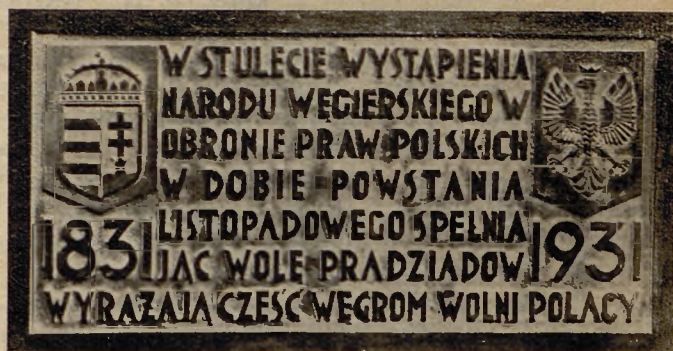 W STULECIE WYSTĄPIENIA
NARODU WĘGIERSKIEGO W
OBRONIE PRAW POLSKICH
W DOBIE POWSTANIA
LISTOPADOWEGO SPEŁNIA
1831 JĄC WOLĘ PRADZIADÓW 1931
WYRAŻAJĄ CZEŚĆ WĘGROM WOLNI POLACY